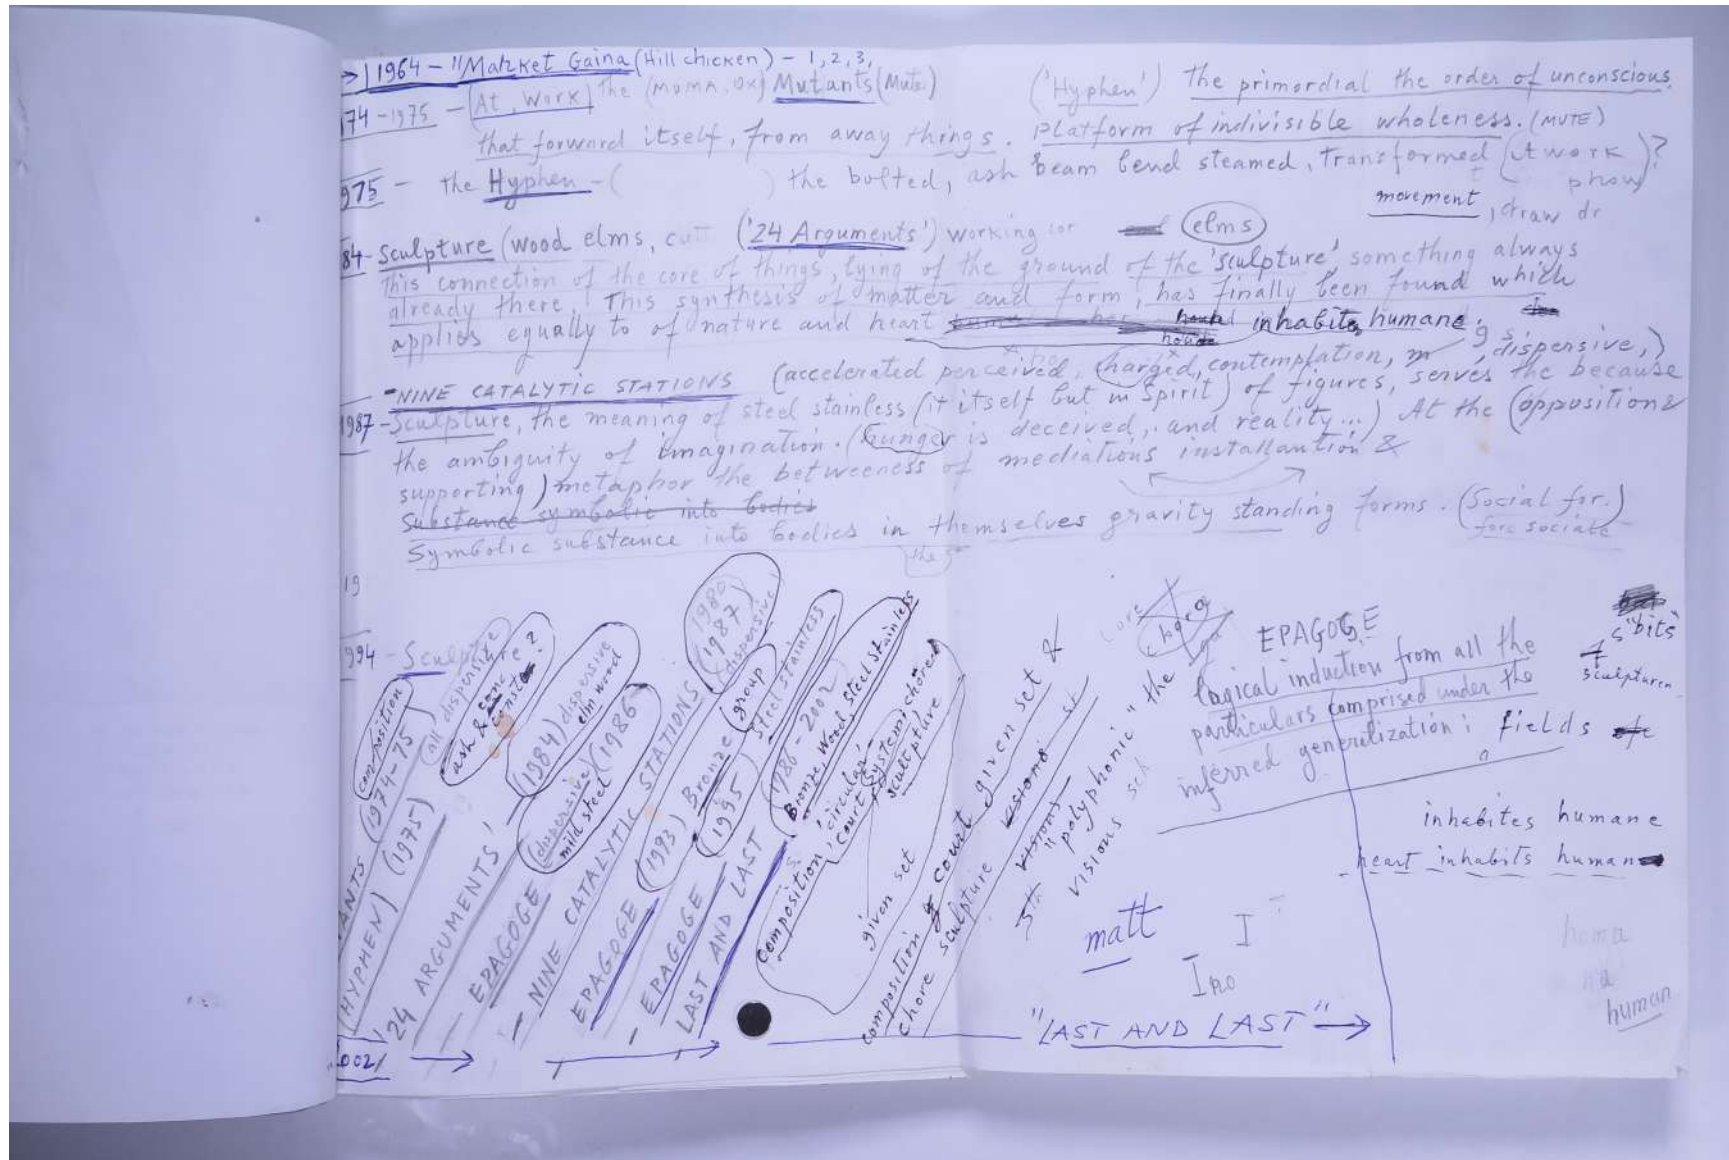 → | 1964 - "Market Gaina (Hill chicken) - 1, 2, 3,
74-1975 - (At, Work) the (MOMA, OX) Mutants (Mute)
('Hyphen') The primordial the order of unconscious
that forward itself, from away things. Platform of indivisible wholeness. (MUTE)
975 - the Hyphen - ( ) the bolted, ash beam bend steamed, transformed (At work
movement, draw
84 - Sculpture (wood elms, ('24 Arguments') working elms
This connection of the core of things, lying of the ground of the 'sculpture' something always
already there, This synthesis of matter and form, has finally been found which
applies equally to of nature and heart inhabites humane
- NINE CATALYTIC STATIONS (accelerated perceived, charged, contemplation, dispersive,)
1987 - Sculpture, the meaning of steel stainless (it itself but in spirit) of figures, serves the because
the ambiguity of imagination. (hunger is deceived, and reality...) At the (opposition &
supporting) metaphor the betweeness of mediations installantion &
Substance symbolic into bodies
Symbolic substance into bodies in themselves gravity standing forms. (Social for.)
the
19
1994 - Sculpture
composition
(1974-75)
(all) dispersive
ash &
ANTS
(HYPHEN) (1975)
'24 ARGUMENTS'
(1984) dispersive
elm wood
- EPAGOGE
(dispersive) (1986)
mild steel
- NINE CATALYTIC STATIONS
1980
(1987)
dispersive
EPAGOGE (1993) Bronze group
- EPAGOGE (1995) Steel stainless
LAST AND LAST (1986-2002)
Bronze, Wood, Steel stainless
composition, 'circular,
court (system) chore
sculpture
given set
composition of court given set &
chore sculpture visions
visions "polyphonic" the
visions
core
charge
EPAGOGE
logical induction from all the
particulars comprised under the
inferred generilization: fields
"bits"
sculpturen
inhabites humane
heart inhabits human
matt
I
"LAST AND LAST" →
homa
human
002